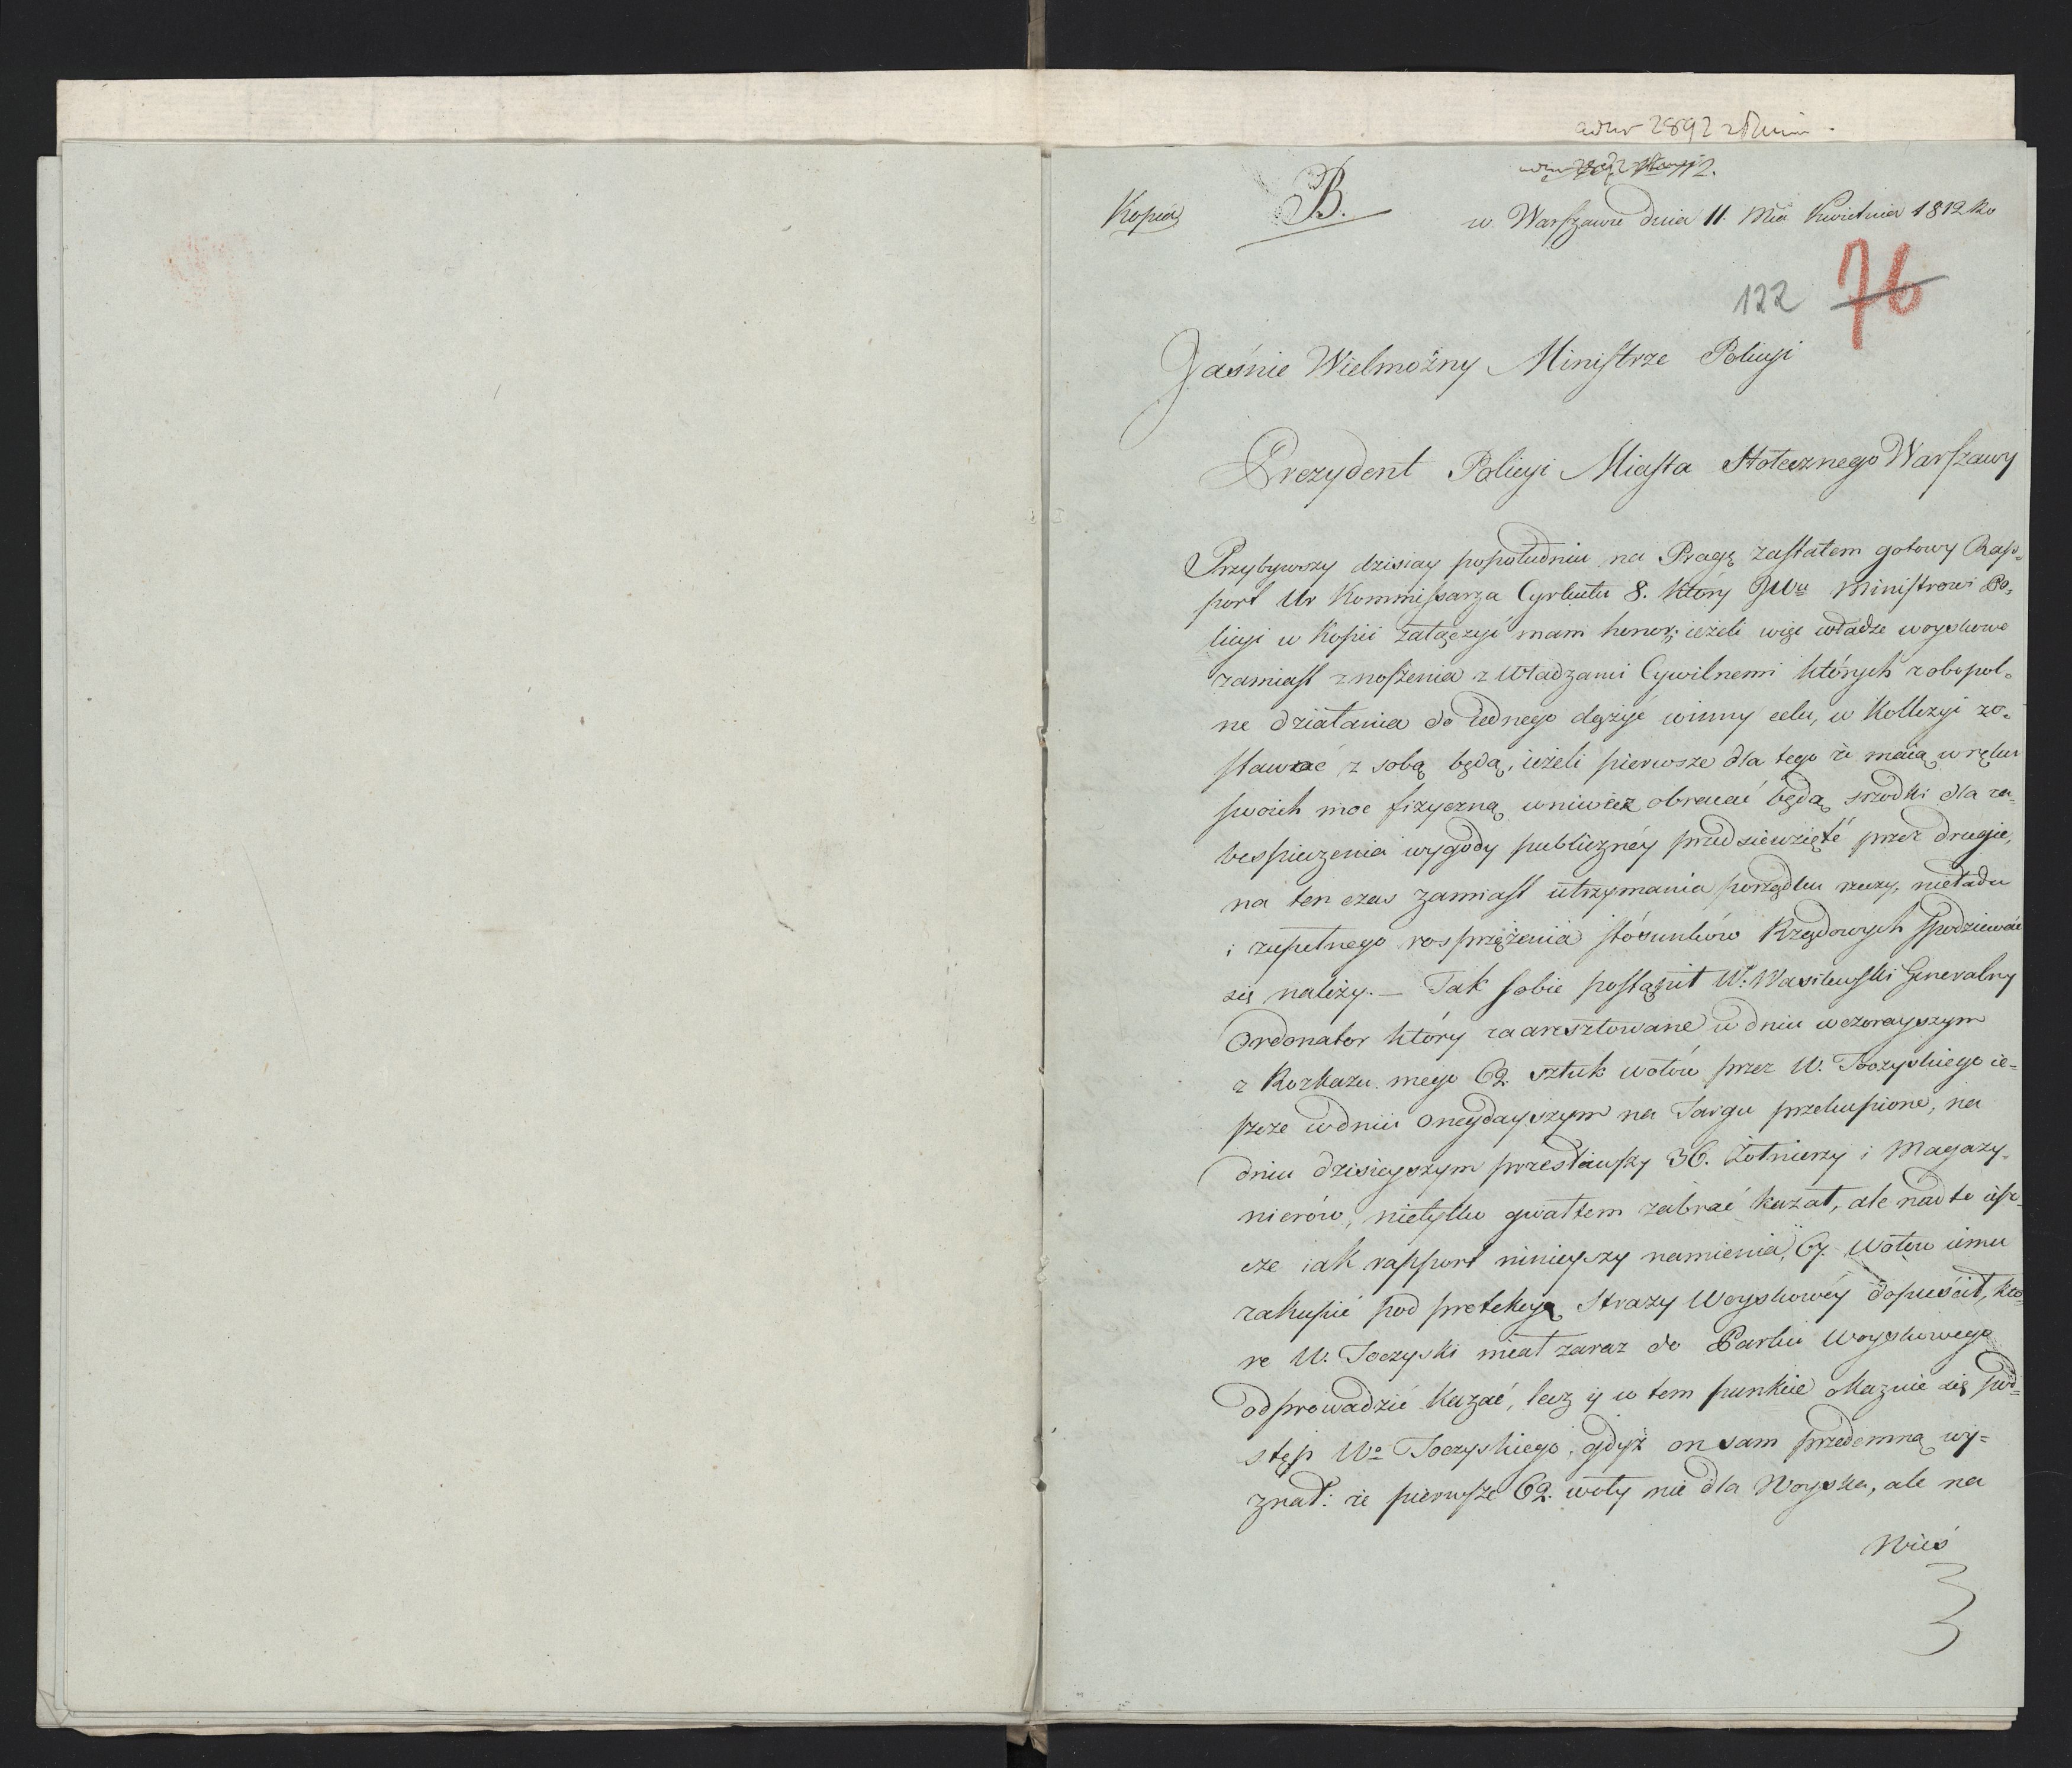 2892
Kopia B. w Warszawie dnia 11. Mca Kwietnia 1812 ko
122 76
Jaśnie Wielmożny Ministrze Policyi
Prezydent Policyi Miasta Stołecznego Warszawy
Przybywszy dzisiay popołudniu na Pragę zastałem gotowy Rap=
port Ur Kommissarza Cyrkułu 8. który JWu Ministrowi Po=
licyi w Kopii załączyć mam honor; ieżeli więc władze woyskowe
zamiast znoszenia z Władzami Cywilnemi których zobopol=
ne działania do iednego dążyć winny celu, w Kollizyi zo=
stawać z sobą będą, ieżeli pierwsze dla tego że maią w ręku
swoich moc fizyczną wniwecz obracać będą srzodki dla za=
bespieczenia wygody publicznéy przedsiewzięté przez drugie,
na ten czas zamiast utrzymania porządku rzeczy, nieładu
i zupełnego rosprzężenia stósunków Rządowych spodziewać
się należy. — Tak sobie postąpił W. Wasilewski Generalny
Ordonator który zaaresztowane w dniu wczorayszym
z Rozkazu mego 62. sztuk wołów przez W. Toczyskiego ie=
szcze w dniu onegdayszym na Targu przekupione, na
dniu dzisieyszym przesławszy 36. Żołnierzy i Magazy=
nierów, nietylko gwałtem zabrać kazał, ale nadto iesz=
cze iak rapport ninieyszy namienia, 67. Wołow iemu
zakupić pod protekcyą Straży Woyskowéy dopuścił, któ=
re W. Toczyski miał zaraz do Parku Woyskowego
odprowadzić kazać, lecz y w tem punkcie okazuie się pod=
stęp Wo Toczyskiego, gdyż on sam przedemną wy=
znał: że pierwsze 62. woły nie dla Woyska, ale na
Wieś